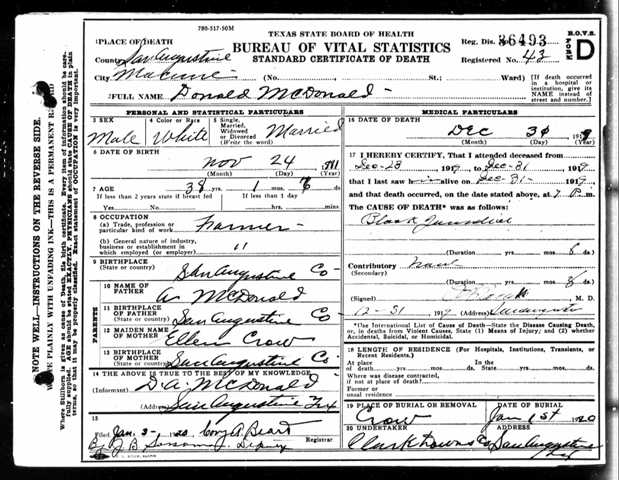 786-517-50M
TEXAS STATE BOARD OF HEALTH
BUREAU OF VITAL STATISTICS
STANDARD CERTIFICATE OF DEATH
Reg. Dis. 36493
Registered No. 43
B.O.V.S. FORM D
PLACE OF DEATH
County San Augustine
City (No. St.; Ward)
[If death occurred in a hospital or institution, give its NAME instead of street and number.]
FULL NAME Donald McDonald
PERSONAL AND STATISTICAL PARTICULARS
3 SEX Male
4 Color or Race White
5 Single, Married, Widowed or Divorced (Write the word) Married
6 DATE OF BIRTH Nov 24
(Month) (Day) (Year)
7 AGE 38 1
If less than 2 years state if breast fed
If less than 1 day
Yes No hrs. min.
8 OCCUPATION
(a) Trade, profession or particular kind of work Farmer
(b) General nature of industry, business or establishment in which employed (or employer) "
9 BIRTHPLACE
(State or country) San Augustine Co
PARENTS
10 NAME OF FATHER A McDonald
11 BIRTHPLACE OF FATHER
(State or country) San Augustine Co
12 MAIDEN NAME OF MOTHER Ellen Crow
13 BIRTHPLACE OF MOTHER
(State or country) San Augustine Co
14 THE ABOVE IS TRUE TO THE BEST OF MY KNOWLEDGE
(Informant) D.A. McDonald
(Address) San Augustine Tex
15
Filed Jan. 3- 1920
Registrar
By J B Deputy
MEDICAL PARTICULARS
16 DATE OF DEATH
Dec 1919
(Month) (Day) (Year)
17 I HEREBY CERTIFY, That I attended deceased from
Dec-28 1919 to Dec-31 1919
that I last saw alive on Dec-31- 1919
and that death occurred, on the date stated above, at 7 P.m.
The CAUSE OF DEATH* was as follows:
Black Jaundice
(Duration yrs. mos. 8 ds.
Contributory
(Secondary)
(Duration yrs. mos. 8 ds.
(Signed) M. D.
12-31 1919 (Address)
*Use International List of Causes of Death—State the Disease Causing Death, or, in deaths from Violent Causes, State (1) Means of Injury; and (2) whether Accidental, Suicidal, or Homicidal.
18 LENGTH OF RESIDENCE (For Hospitals, Institutions, Transients, or Recent Residents.)
At place of death yrs. mos. ds. In the State yrs. mos. ds.
Where was disease contracted, if not at place of death?
Former or usual residence
19 PLACE OF BURIAL OR REMOVAL Crow
DATE OF BURIAL Jan 1st 1920
20 UNDERTAKER Clark Downs Co
ADDRESS San Augustine Tex
NOTE WELL—INSTRUCTIONS ON THE REVERSE SIDE.
PLAINLY WITH UNFADING INK—THIS IS A PERMANENT